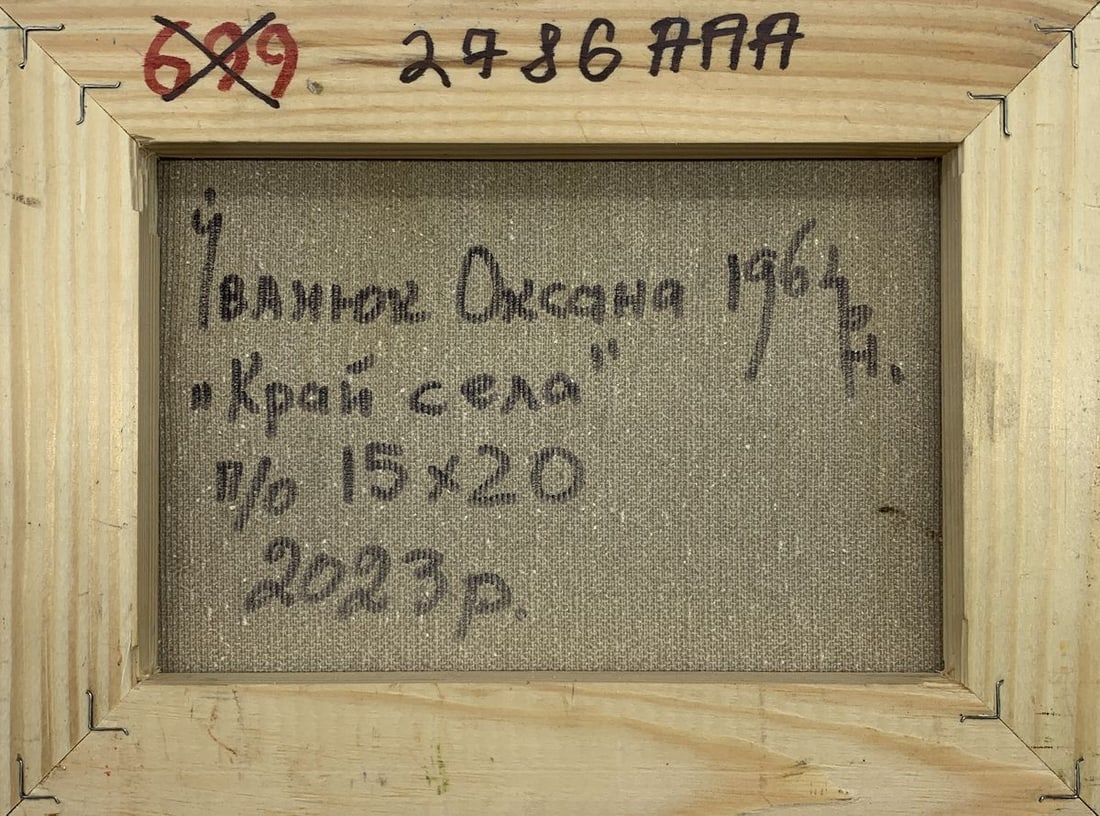 699 2786 AAA
Іванюк Оксана 1964 р.н.
„Край села"
п/о 15х20
2023 р.